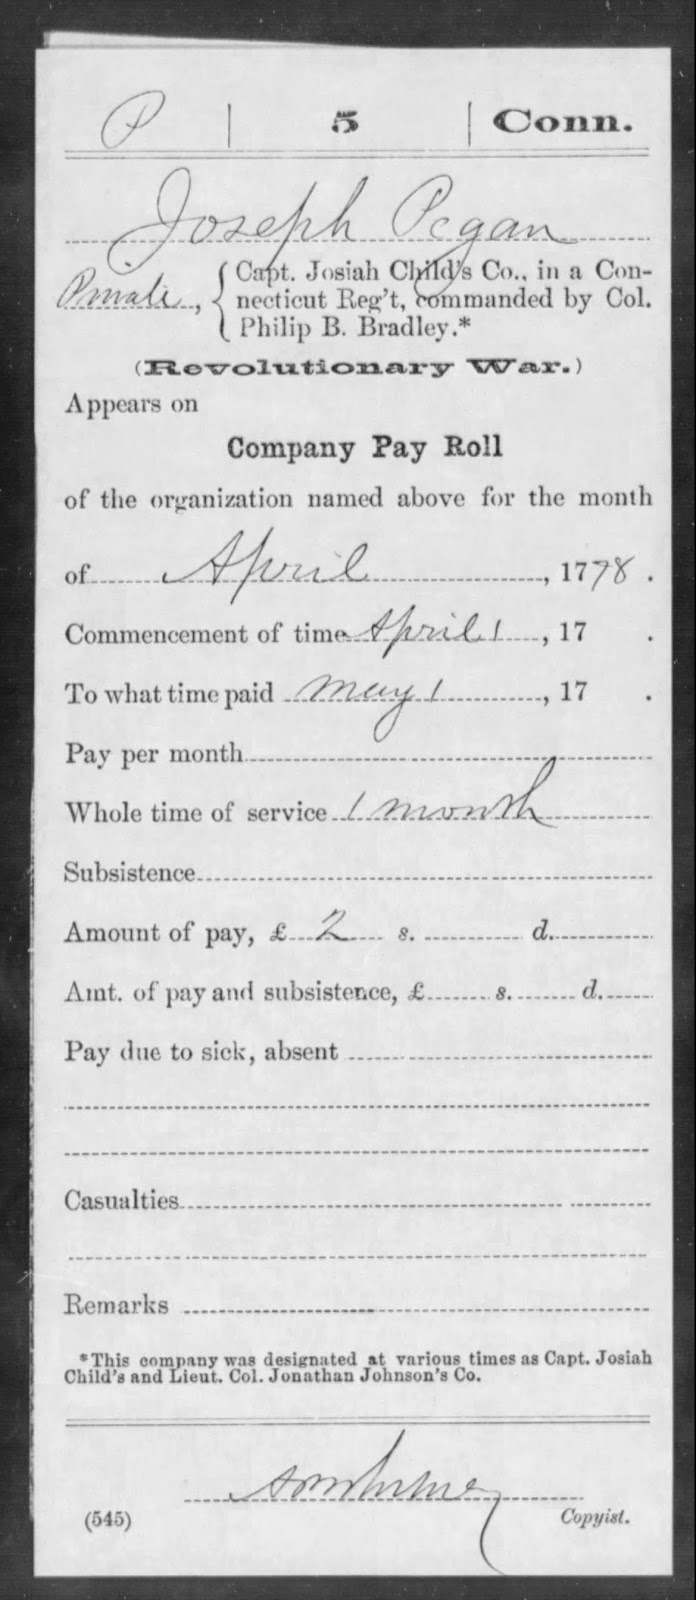 P | 5 | Conn.
Joseph Pegan
Private, { Capt. Josiah Child's Co., in a Con-
necticut Reg't, commanded by Col.
Philip B. Bradley.*
(Revolutionary War.)
Appears on
Company Pay Roll
of the organization named above for the month
of April, 1778.
Commencement of time April 1, 17 .
To what time paid May 1, 17 .
Pay per month
Whole time of service 1 month
Subsistence
Amount of pay, £ 2 s. d.
Amt. of pay and subsistence, £ s. d.
Pay due to sick, absent
Casualties
Remarks
*This company was designated at various times as Capt. Josiah
Child's and Lieut. Col. Jonathan Johnson's Co.
(545) Copyist.